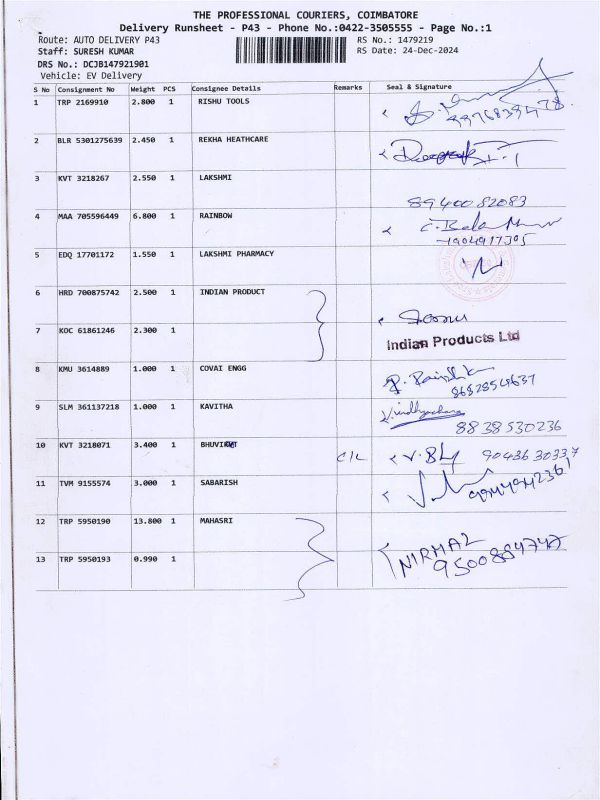 THE PROFESSIONAL COURIERS, COIMBATORE
Delivery Runsheet - P43 - Phone No.:0422-3505555 - Page No.:1
Route: AUTO DELIVERY P43 RS No.: 1479219
Staff: SURESH KUMAR RS Date: 24-Dec-2024
DRS No.: DCJB147921901
Vehicle: EV Delivery
S No Consignment No Weight PCS Consignee Details Remarks Seal & Signature
1 TRP 2169910 2.800 1 RISHU TOOLS
2 BLR 5301275639 2.450 1 REKHA HEATHCARE
3 KVT 3218267 2.550 1 LAKSHMI
8940082083
4 MAA 705596449 6.800 1 RAINBOW
5 EDQ 17701172 1.550 1 LAKSHMI PHARMACY
6 HRD 700875742 2.500 1 INDIAN PRODUCT
7 KOC 61861246 2.300 1 Indian Products Ltd
8 KMU 3614889 1.000 1 COVAI ENGG
9 SLM 361137218 1.000 1 KAVITHA
8838530236
10 KVT 3218071 3.400 1 C/L 9043630337
11 TVM 9155574 3.000 1 SABARISH
12 TRP 5950190 13.800 1 MAHASRI
NIRMAL
13 TRP 5950193 0.990 1